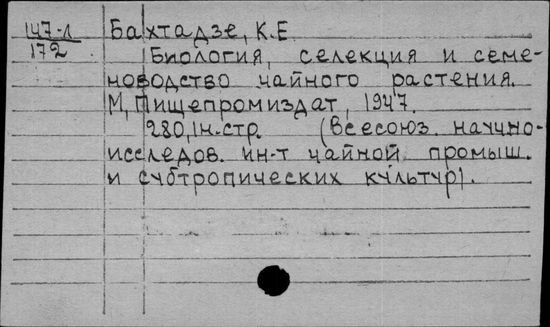 147-л Бахтадзе, К.Е
172 Биология, селекция и семе-
новодство чайного растения.
М, Пищепромиздат, 1947.
280, 1н.стр. (Всесоюз. научно-
исследов. ин-т чайной промыш.
и субтропических культур).